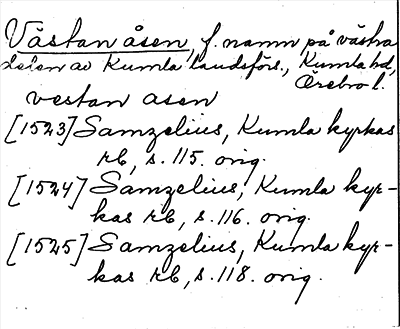 Västan åsen, f. namn på västra
delen av Kumla landsförs., Kumla hd,
Örebro l.
vestan asen
[1523] Samzelius, Kumla kyrkas
rb, s. 115. orig.
[1524] Samzelius, Kumla kyr-
kas rb, s. 116. orig.
[1525] Samzelius, Kumla kyr-
kas rb, s. 118. orig.